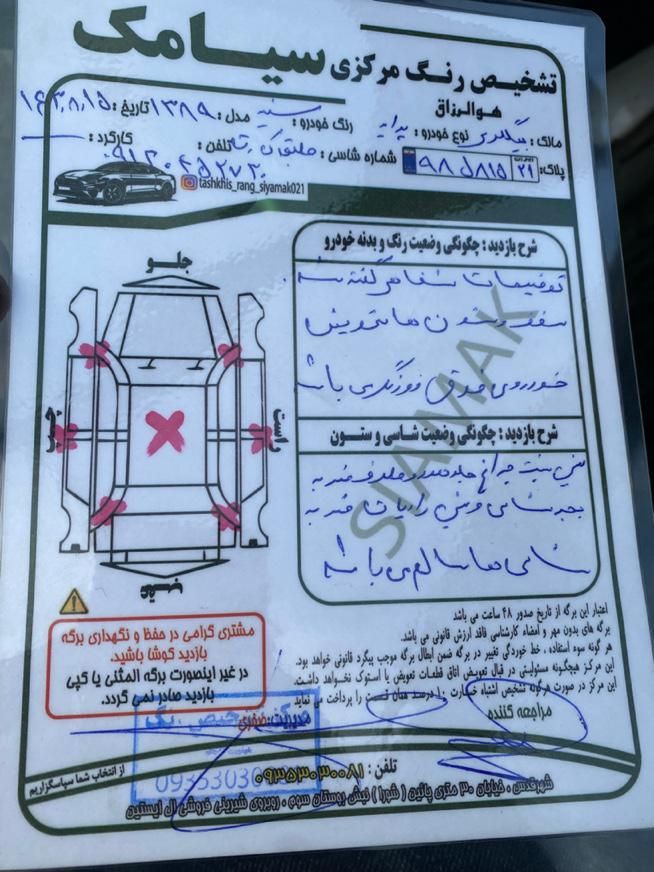 تشخیص رنگ مرکزی سیامک
هوالرزاق
مالک: بیگلری نوع خودرو: پراید رنگ خودرو: سفید مدل: ۱۳۸۹ تاریخ:
پلاک: ۲۱ ۹۸د۸۱۵ شماره شاسی: تلفن: کارکرد:
tashkhis_rang_siyamak021
شرح بازدید: چگونگی وضعیت رنگ و بدنه خودرو
توضیحات شفاهی گفته شد.
سقف و ستون ها تعویض
خودروی فوق می باشد
شرح بازدید: چگونگی وضعیت شاسی و ستون
شاسی ها سالم می باشد
جلو
راست
چپ
عقب
SIAMAK
مشتری گرامی در حفظ و نگهداری برگه
بازدید کوشا باشید.
در غیر اینصورت برگه المثنی یا کپی
بازدید صادر نمی گردد.
اعتبار این برگه از تاریخ صدور ۴۸ ساعت می باشد
برگه های بدون مهر و امضاء کارشناسی فاقد ارزش قانونی می باشد.
هر گونه سوء استفاده، خط خوردگی تغییر در برگه ضمن ابطال برگه موجب پیگرد قانونی خواهد بود.
این مرکز هیچگونه مسئولیتی در قبال تعویض اتاق قطعات تعویض یا استوک نخواهد داشت.
این مرکز در صورت هرگونه تشخیص اشتباه خسارت ۱۰ درصد همان قسمت را پرداخت می نماید
مراجعه کننده
مدیریت: صفری
تلفن: ۰۹۳۵۳۰۳۰۰۸۱
شهرقدس، خیابان ۳۰ متری پائین (شورا) نبش بوستان سوم، روبروی شیرینی فروشی ال ایستین
از انتخاب شما سپاسگزاریم